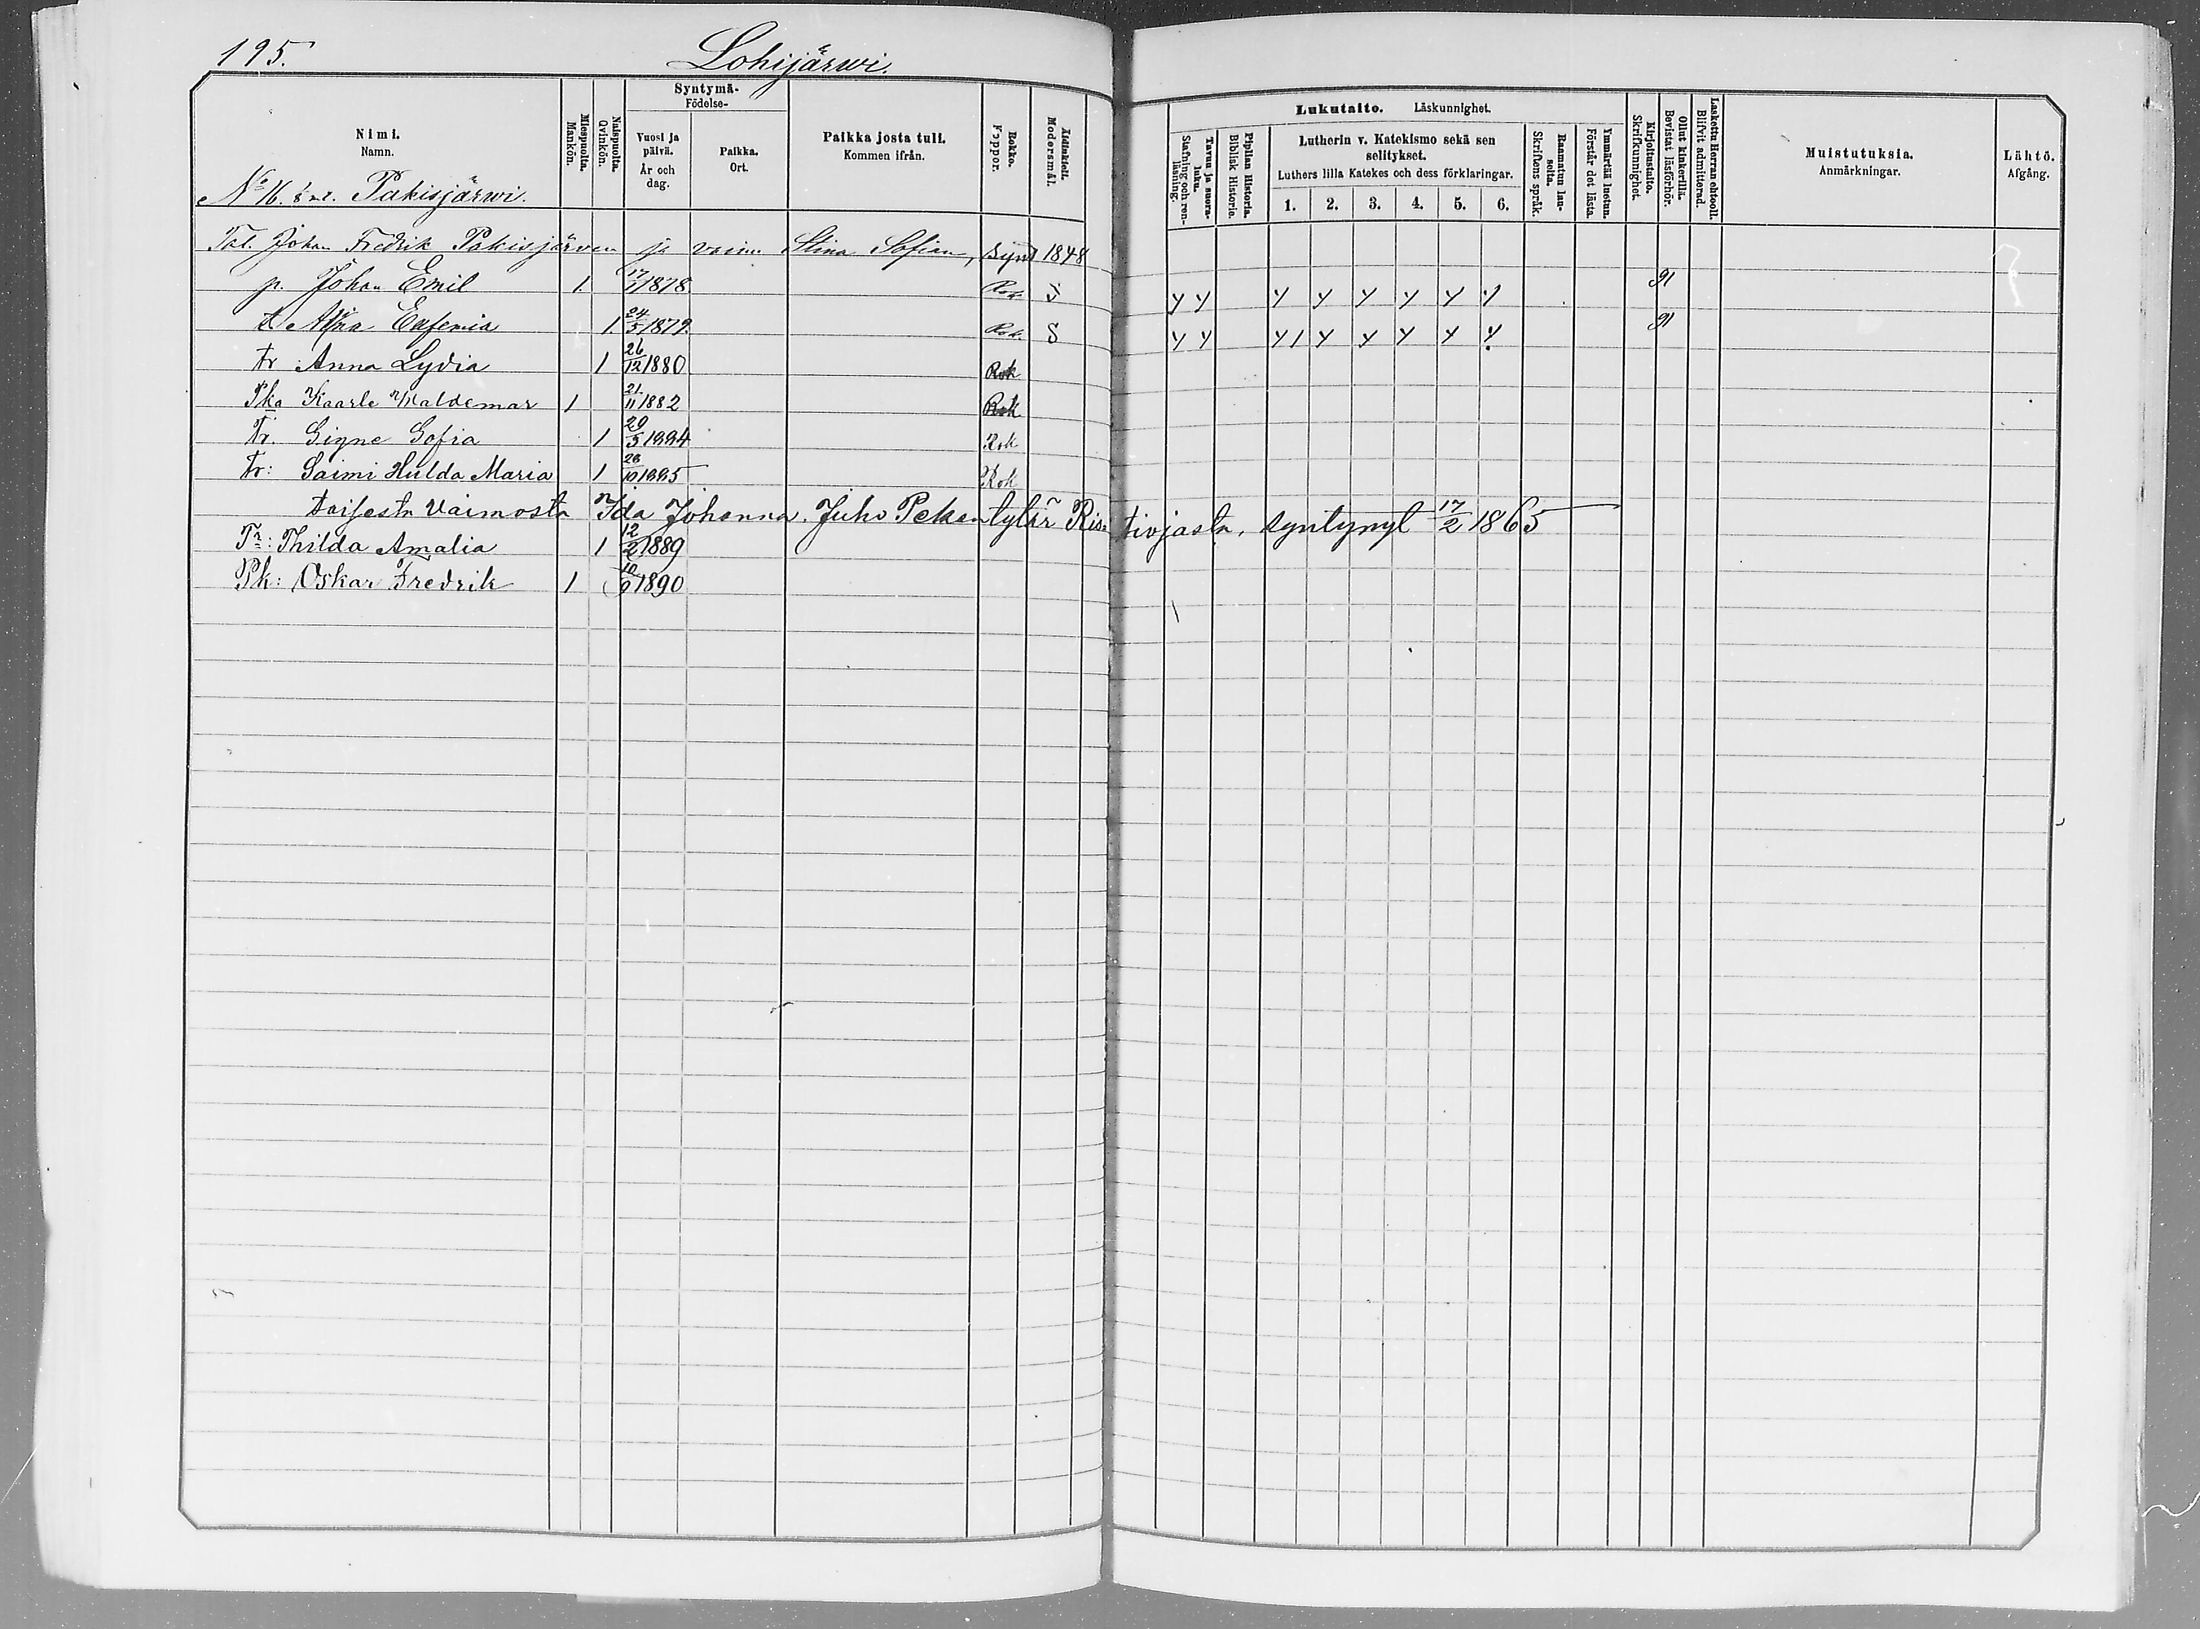 195.
Lohijärwi.
Nimi.
Namn.
Miespuolta.
Mankön.
Naispuolta.
Qvinkön.
Syntymä-
Födelse-
Vuosi ja päivä.
År och dag.
Paikka.
Ort.
Paikka josta tuli.
Kommen ifrån.
Rokko.
Koppor.
Äidinkieli.
Modersmål.
Lukutaito. Läskunnighet.
Tavuu ja suora-luku.
Stafning och ren-läsning.
Piplian Historia.
Biblisk Historie.
Lutherin v. Katekismo sekä sen selitykset.
Luthers lilla Katekes och dess förklaringar.
1. 2. 3. 4. 5. 6.
Raamatun lau-seita.
Skriftens språk.
Ymmärtää luetun.
Förstår det lästa.
Kirjoitustaito.
Skrifkunnighet.
Ollut kinkerillä.
Bevistat läsförhör.
Laskettu Herran ehtooll.
Blifvit admitterad.
Muistutuksia.
Anmärkningar.
Lähtö.
Afgång.
No 16. Pakisjärwi.
Tal. Johan Fredrik Pakisjärven ja vaim. Stina Sofian, synt 1848
p. Johan Emil 1 17/1 1878 Rok. S y y y y y y y y 91
t. Eufemia 1 24/5 1879. Rok. S y y y 1 y y y y y 91
tr Anna Lydia 1 26/12 1880 Rok
Pka Kaarle Waldemar 1 21/11 1882 Rok
Tr. Signe Sofia 1 20/5 1884 Rok
Tr: Saimi Hulda Maria 1 28/10 1885 Rok
toisesta Vaimosta Ida Johanna. Juho Pekan tytär Ris= tiojasta, syntynyt 17/2 1865
Tr: Thilda Amalia 1 12/2 1889
Pk: Oskar Fredrik 1 10/9 1890